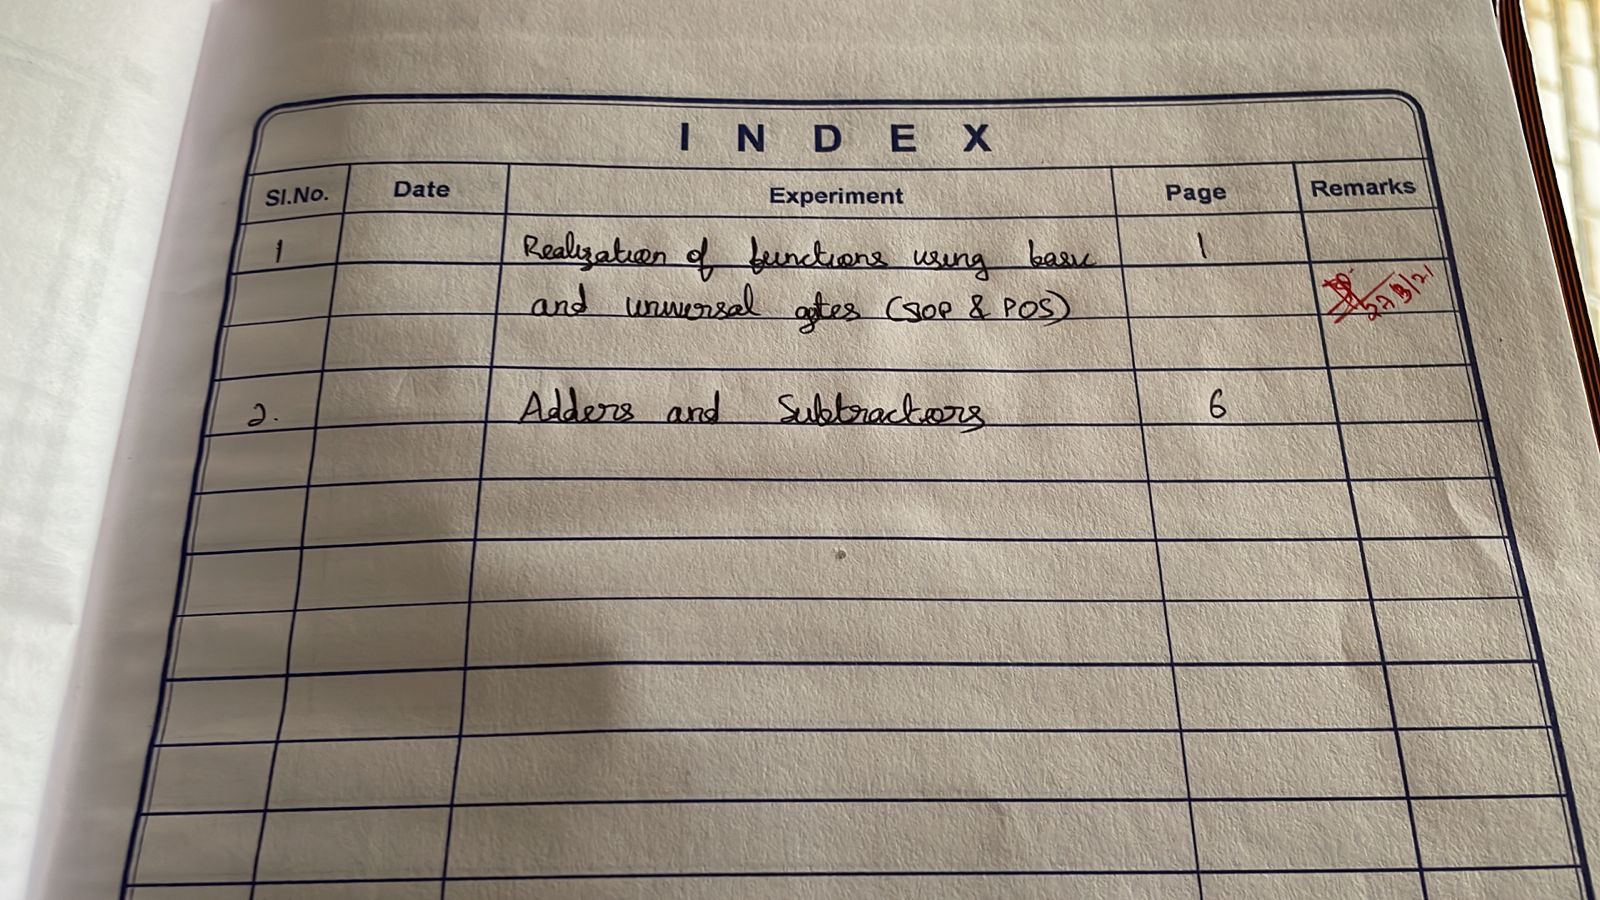 INDEX
Sl.No. Date Experiment Page Remarks
1 Realization of functions using basic 1
and universal gates (SOP & POS)
2. Adders and Subtractors 6